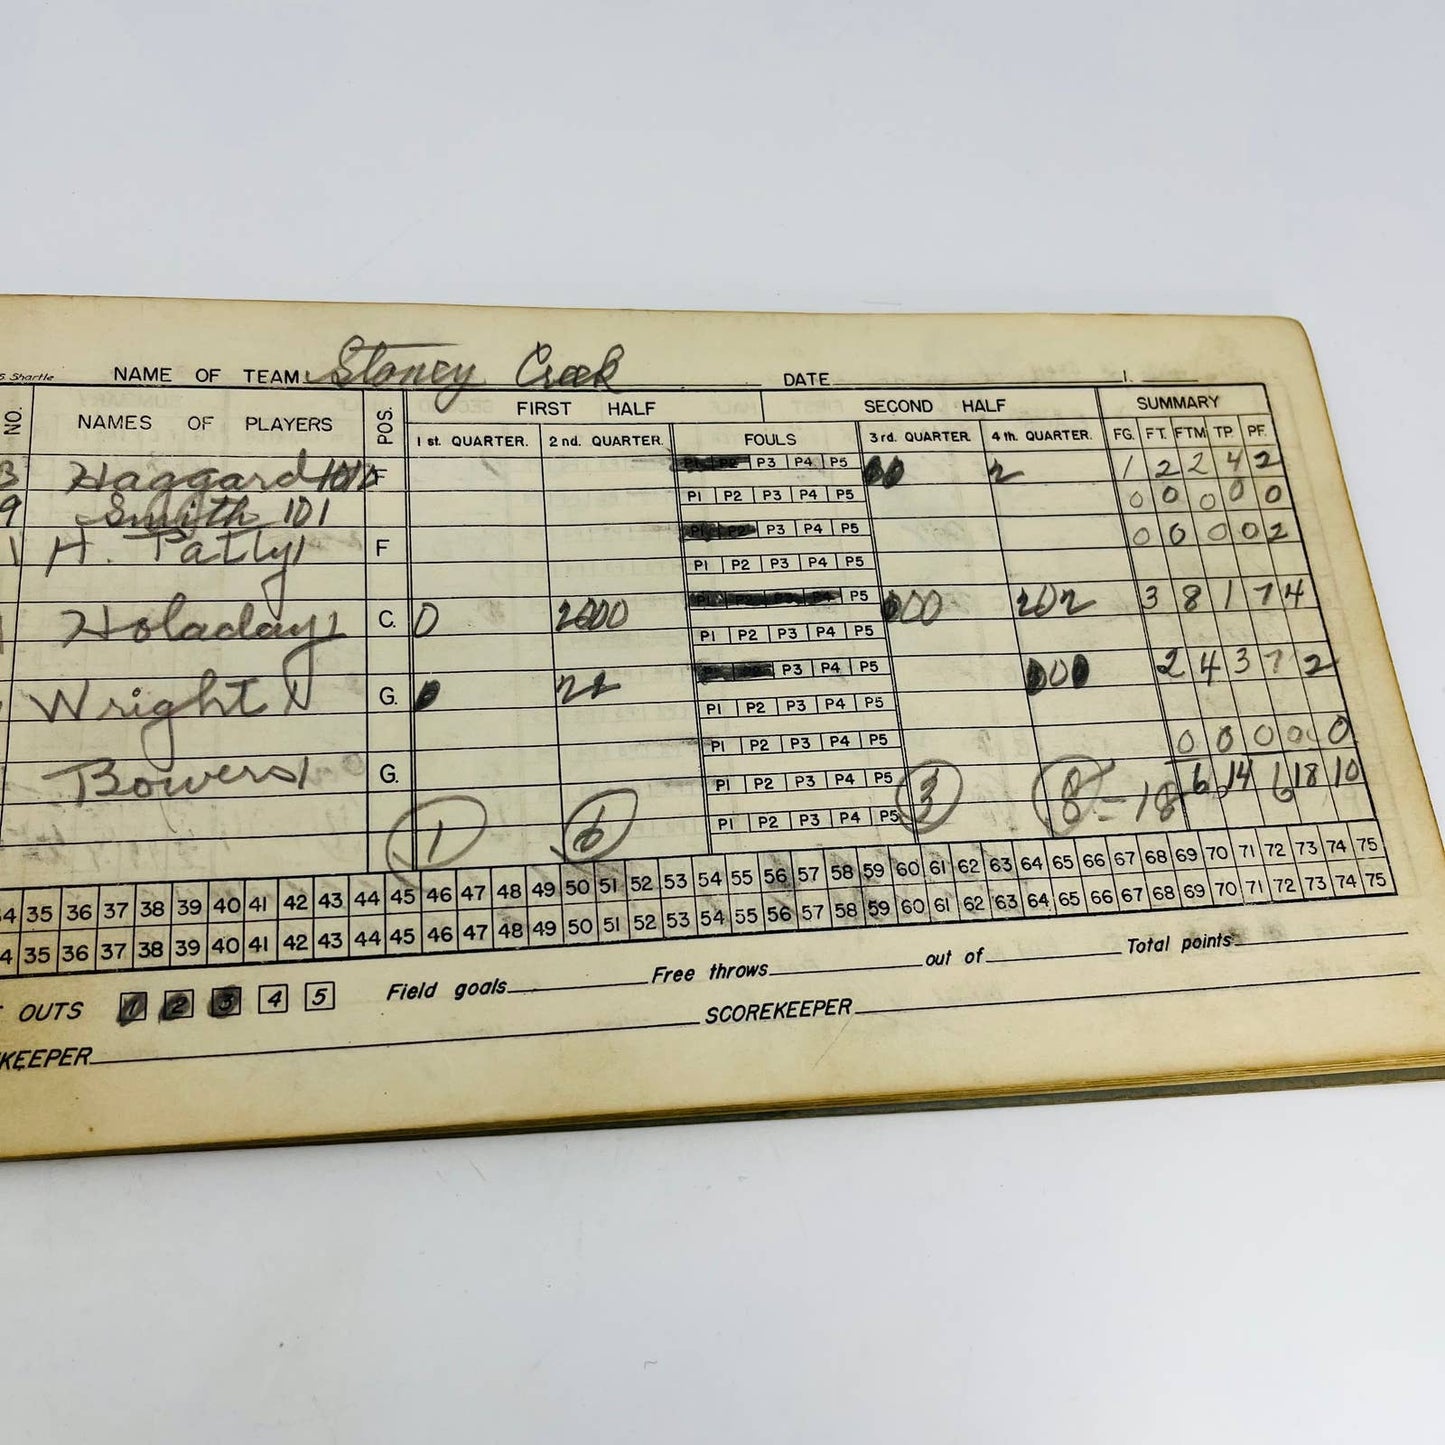 S. Shartle NAME OF TEAM Stoney Creek DATE 1.
NO. NAMES OF PLAYERS POS. FIRST HALF SECOND HALF SUMMARY
1 st. QUARTER. 2 nd. QUARTER. FOULS 3rd. QUARTER 4 th. QUARTER. FG. FT. FTM. TP. PF.
3 Haggard F P1 P2 P3 P4 P5 00 2 1 2 2 4 2
9 Smith 101 P1 P2 P3 P4 P5 0 0 0 0 0
1 H. Patty F P1 P2 P3 P4 P5 0 0 0 0 2
P1 P2 P3 P4 P5
Holaday C. 0 2000 P1 P2 P3 P4 P5 000 202 3 8 1 7 4
P1 P2 P3 P4 P5
Wright G. 0 22 P1 P2 P3 P4 P5 000 2 4 3 7 2
P1 P2 P3 P4 P5
P1 P2 P3 P4 P5 0 0 0 0 0
Bowers G. P1 P2 P3 P4 P5 6 14 6 18 10
1 6 P1 P2 P3 P4 P5 3 8 - 18
34 35 36 37 38 39 40 41 42 43 44 45 46 47 48 49 50 51 52 53 54 55 56 57 58 59 60 61 62 63 64 65 66 67 68 69 70 71 72 73 74 75
4 35 36 37 38 39 40 41 42 43 44 45 46 47 48 49 50 51 52 53 54 55 56 57 58 59 60 61 62 63 64 65 66 67 68 69 70 71 72 73 74 75
OUTS 1 2 3 4 5 Field goals Free throws out of Total points
KEEPER SCOREKEEPER